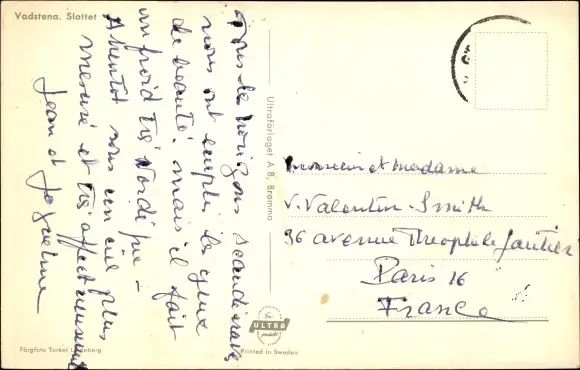 Vadstena. Slottet
Tous les horizons scandinaves
nous ont remplis les yeux
de beauté. mais il fait
un froid très nordique -
A bientôt sous un ciel plus
mesuré et très affectueusement
Jean et Jacqueline
Ultraförlaget A B, Bromma
Monsieur et Madame
V. Valentin-Smith
96 avenue Théophile Gautier
Paris 16
France
ULTRA
Färgfoto Torkel Lindeberg
Printed in Sweden